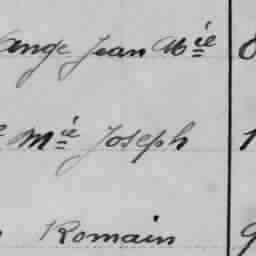 ange Jean Mie
Mie Joseph
Romain